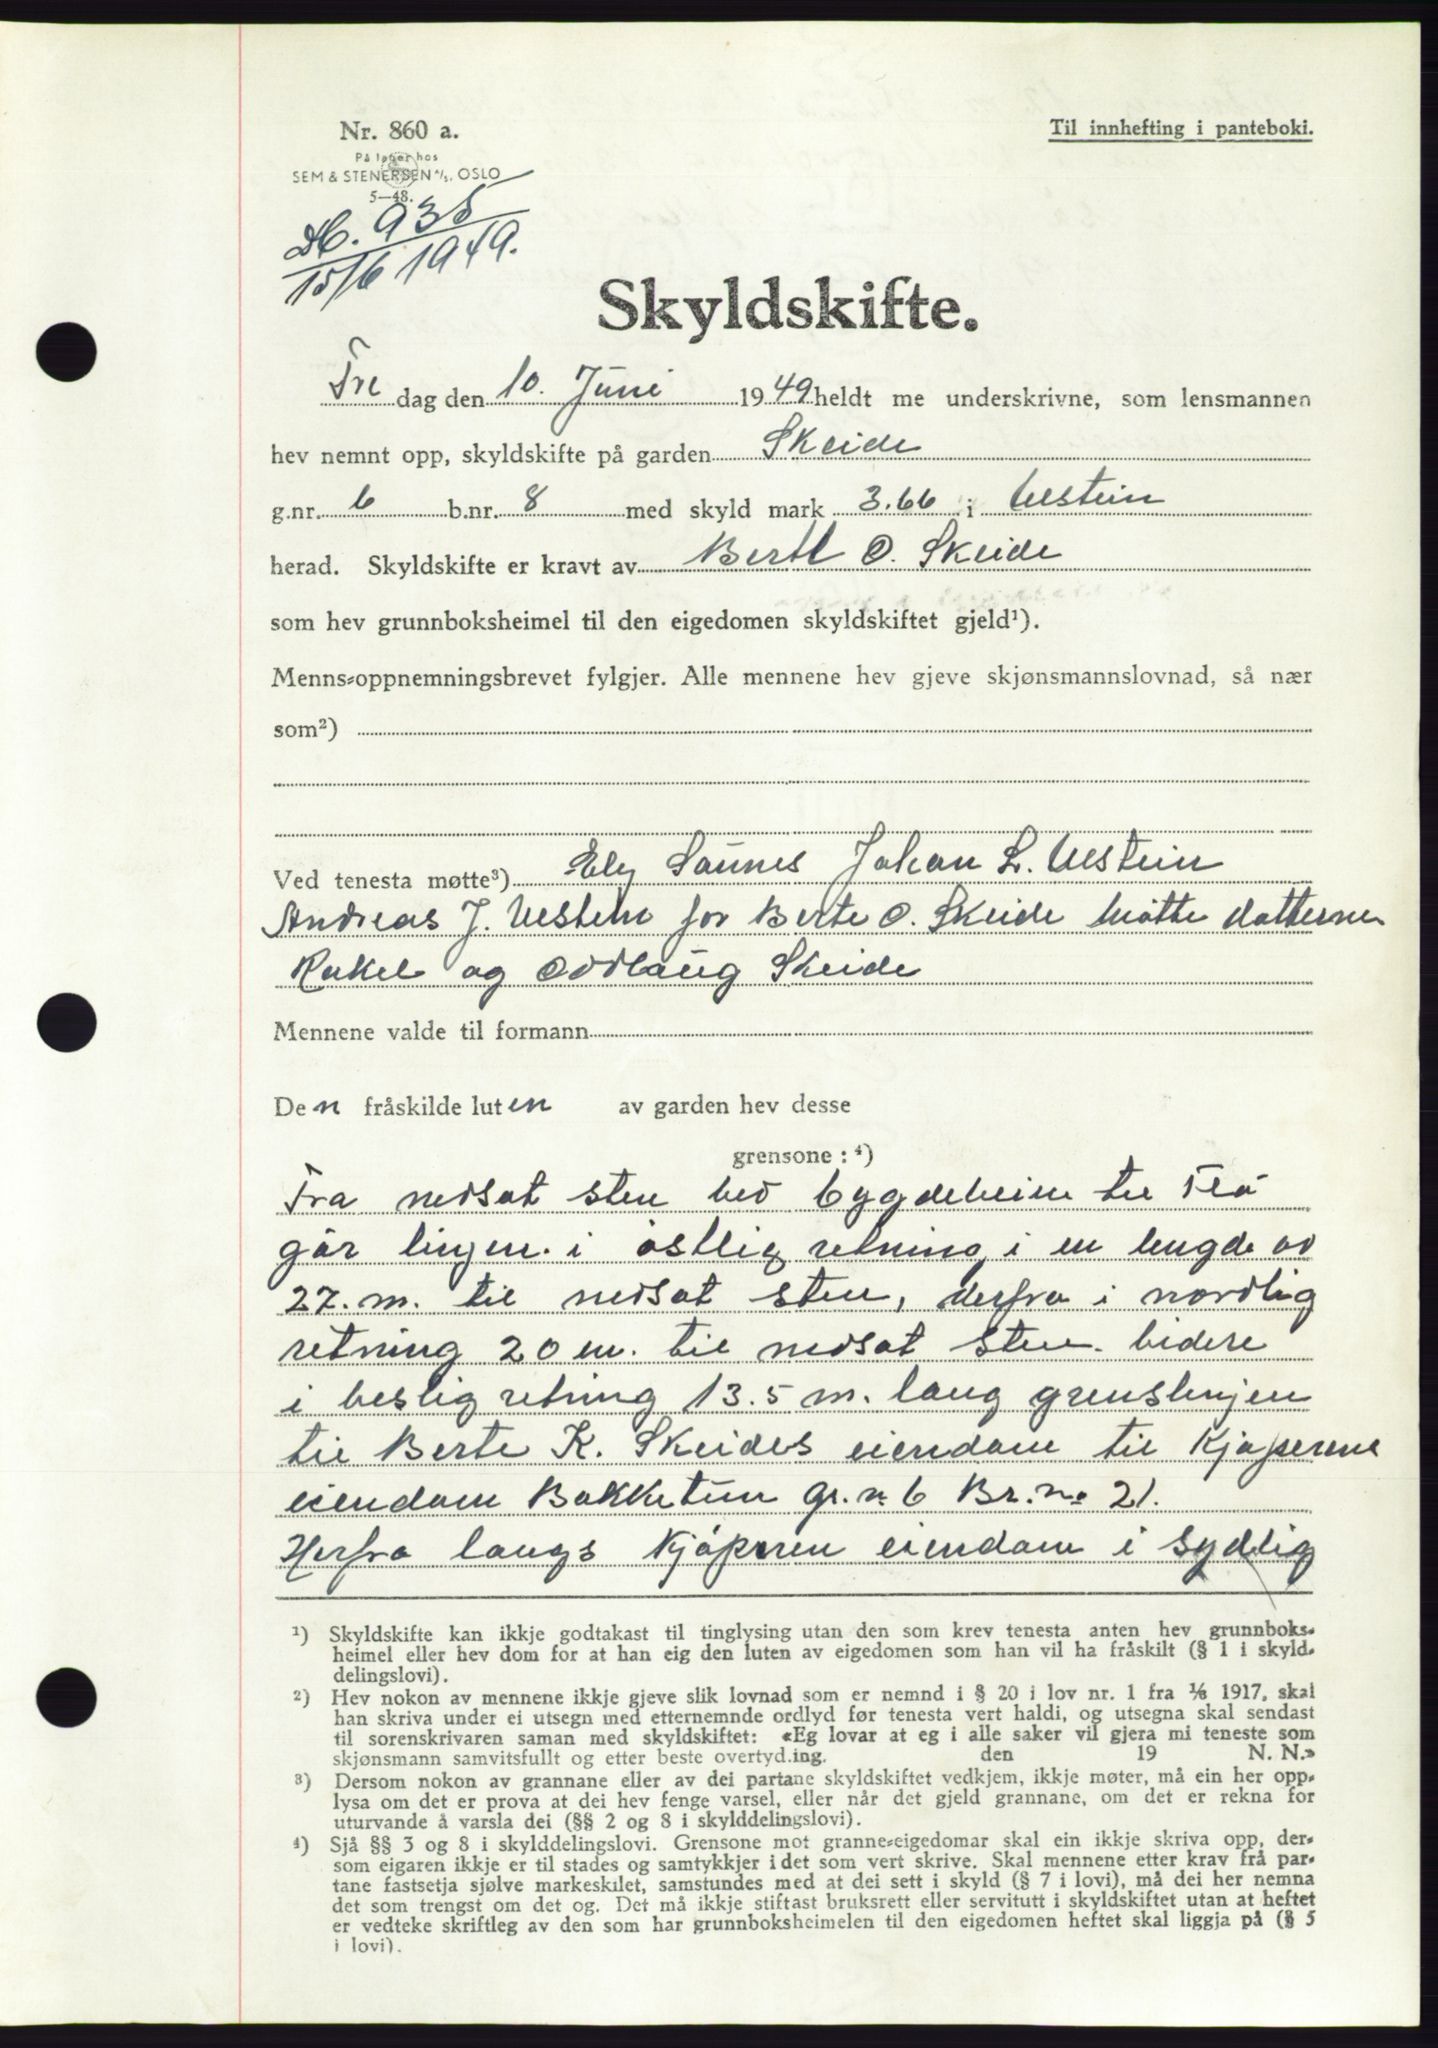 Nr. 860 a.
På lager hos
SEM & STENERSEN A/S. OSLO
5—48.
Til innhefting i panteboki.
Db. 935
15/6 1949.
Skyldskifte.
Fre dag den 10. Juni 1949 heldt me underskrivne, som lensmannen
hev nemnt opp, skyldskifte på garden Skeide
g.nr. 6 b.nr. 8 med skyld mark 3.66 i Ulstein
herad. Skyldskifte er kravt av Bertl O. Skeide
som hev grunnboksheimel til den eigedomen skyldskiftet gjeld¹).
Menns-oppnemningsbrevet fylgjer. Alle mennene hev gjeve skjønsmannslovnad, så nær
som²)
Ved tenesta møtte³) Ely Saunes Johan L. Ulstein
Andreas J. Ulstein for Berte O. Skeide møtte døtterne
Rakel og Oddlaug Skeide
Mennene valde til formann
Den fråskilde luten av garden hev desse
grensone : ⁴)
Fra nedsat sten ved bygdeheim til Flø
går linjen. i østlig retning i en lengde av
27. m. til nedsat sten, derfra i nordlig
retning 20 m. til nedsat sten. videre
i vestlig retning 13.5 m. lang grenslinjen
til Berte K. Skeides eiendom til Kjøperens
eiendom Bakketun gr. nr 6 Br. no 21.
Herfra langs Kjøperen eiendom i sydlig
¹) Skyldskifte kan ikkje godtakast til tinglysing utan den som krev tenesta anten hev grunnboks-
heimel eller hev dom for at han eig den luten av eigedomen som han vil ha fråskilt (§ 1 i skyld-
delingslovi).
²) Hev nokon av mennene ikkje gjeve slik lovnad som er nemnd i § 20 i lov nr. 1 fra 1/6 1917, skal
han skriva under ei utsegn med etternemnde ordlyd før tenesta vert haldi, og utsegna skal sendast
til sorenskrivaren saman med skyldskiftet: «Eg lovar at eg i alle saker vil gjera mi teneste som
skjønsmann samvitsfullt og etter beste overtyding. den 19 N. N.»
³) Dersom nokon av grannane eller av dei partane skyldskiftet vedkjem, ikkje møter, må ein her opp-
lysa om det er prova at dei hev fenge varsel, eller når det gjeld grannane, om det er rekna for
uturvande å varsla dei (§§ 2 og 8 i skylddelingslovi).
⁴) Sjå §§ 3 og 8 i skylddelingslovi. Grensone mot granne-eigedomar skal ein ikkje skriva opp, der-
som eigaren ikkje er til stades og samtykkjer i det som vert skrive. Skal mennene etter krav frå par-
tane fastsetja sjølve markeskilet, samstundes med at dei sett i skyld (§ 7 i lovi), må dei her nemna
det som trengst om det og. Det må ikkje stiftast bruksrett eller servitutt i skyldskiftet utan at heftet
er vedteke skriftleg av den som har grunnboksheimelen til den eigedomen heftet skal liggja på (§ 5
i lovi).